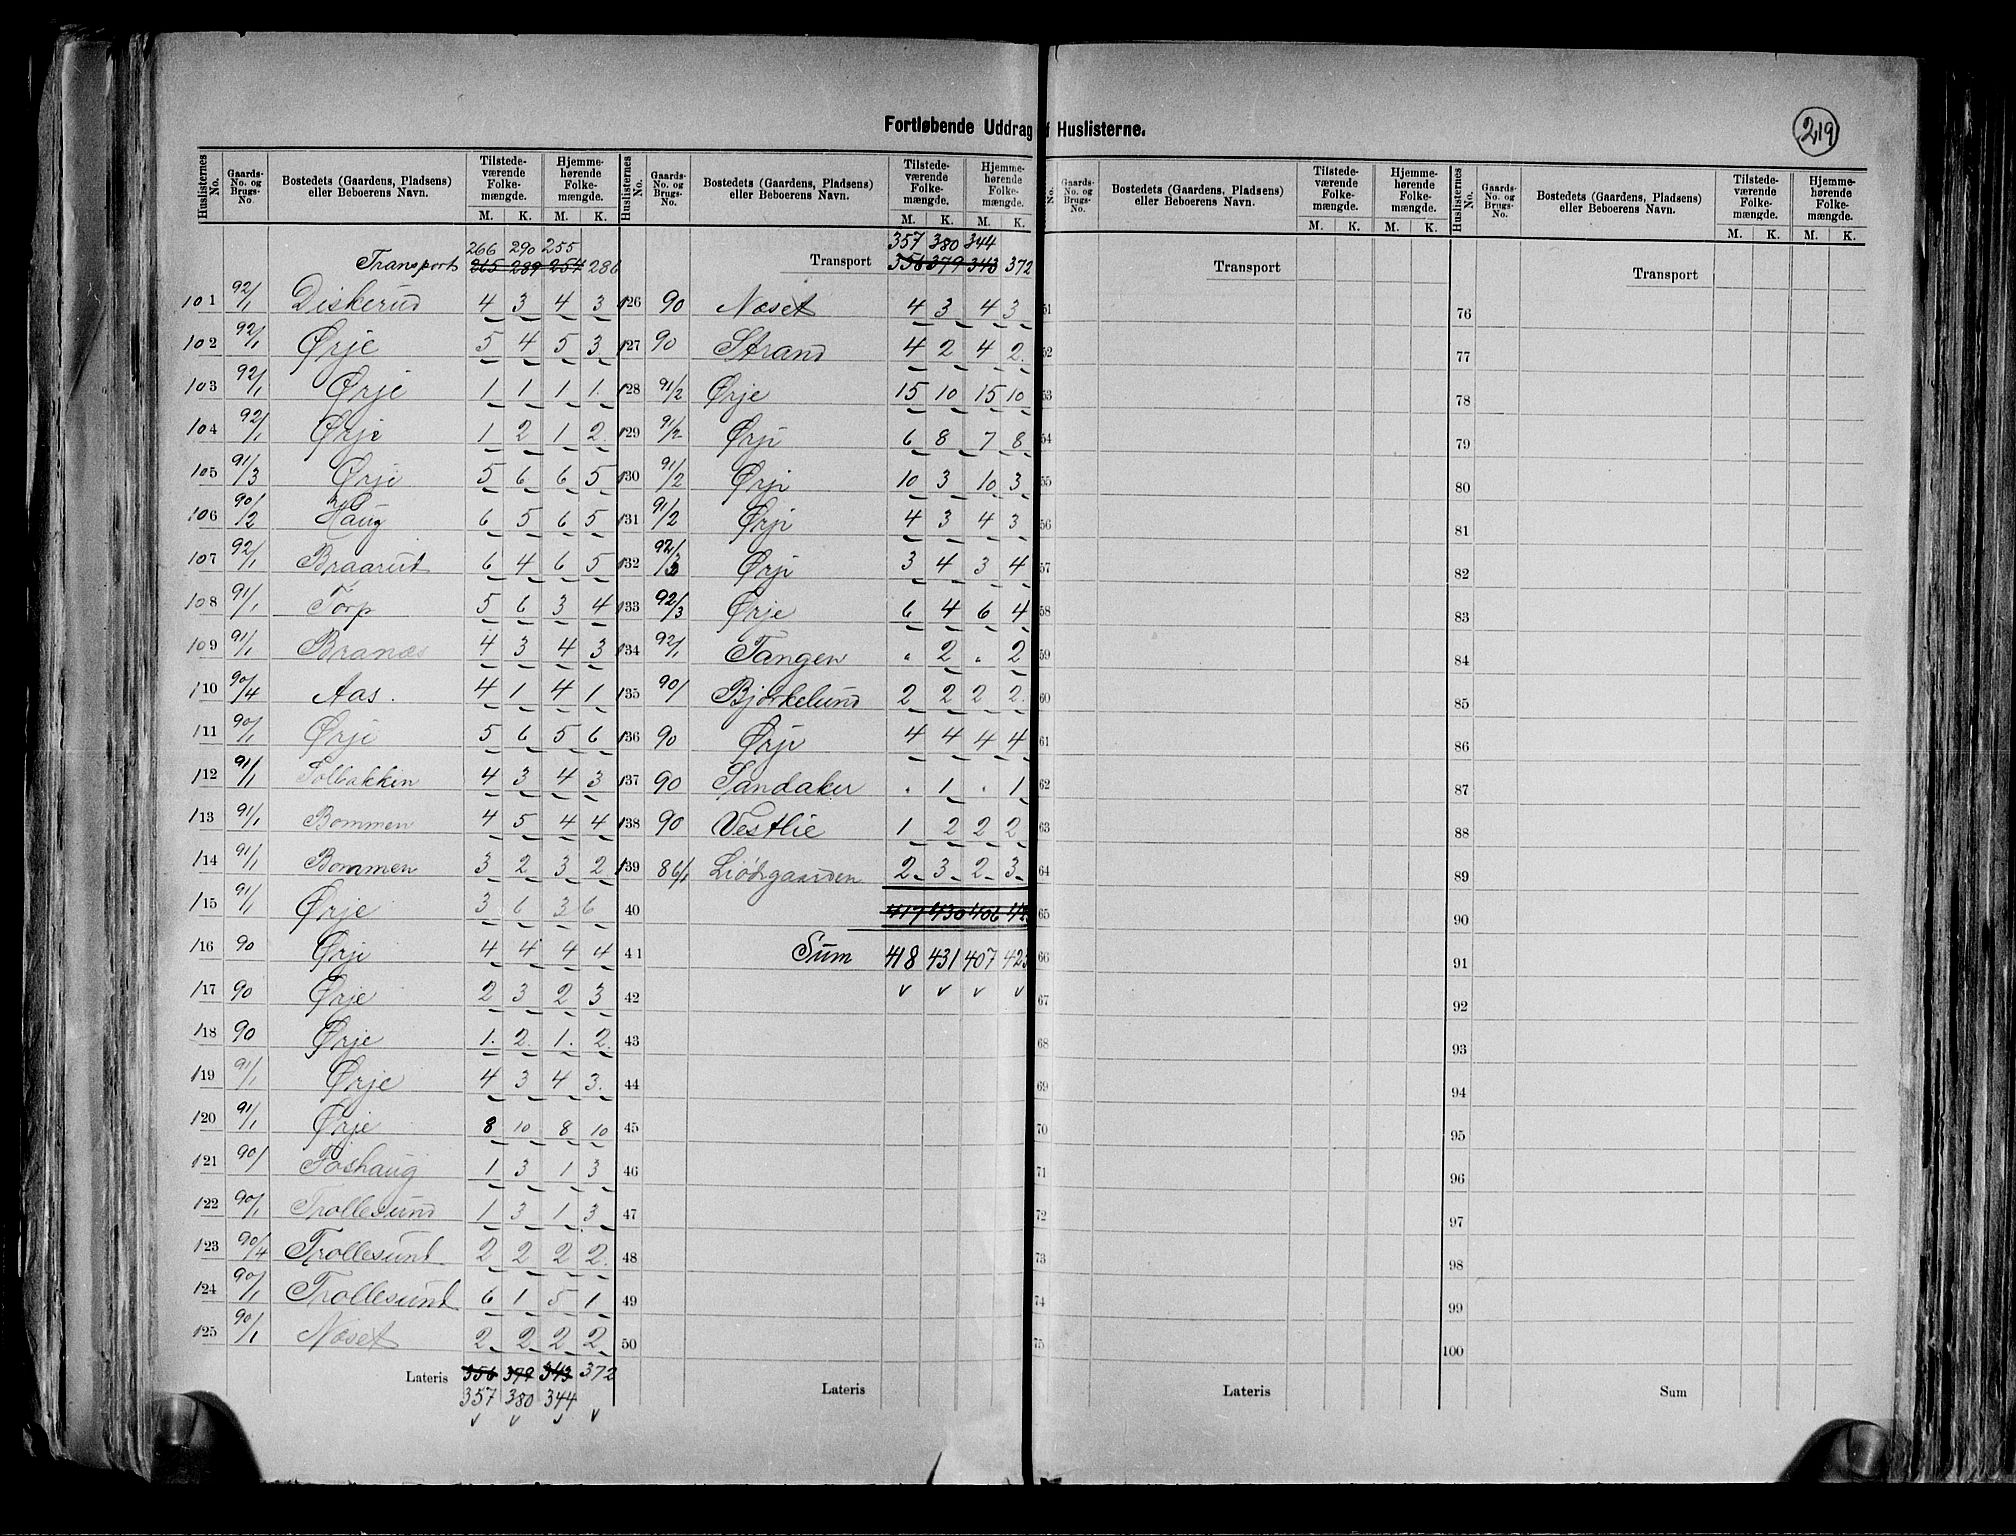 Fortløbende Uddrag af Huslisterne.
219
Huslisternes No. Gaards-No. og Brugs-No. Bostedets (Gaardens, Pladsens) eller Beboerens Navn. Tilstedeværende Folkemængde. M. K. Hjemmehørende Folkemængde. M. K.
Transport 266 290 255
265 289 254 286
101 92/1 Diskerud 4 3 4 3
102 92/1 Ørje 5 4 5 3
103 92/1 Ørje 1 1 1 1.
104 92/1 Ørje 1 2 1 2.
105 91/3 Ørje 5 6 6 5
106 90/2 Haug 6 5 6 5
107 92/1 Braarut 6 4 6 5
108 91/1 Torp 5 6 3 4
109 91/1 Branæs 4 3 4 3
110 90/4 Aas. 4 1 4 1
111 90/1 Ørje 5 6 5 6
112 91/1 Solbakken 4 3 4 3
113 91/1 Bommen 4 5 4 4
114 91/1 Bommen 3 2 3 2
115 91/1 Ørje 3 6 3 6
116 90 Ørje 4 4 4 4
117 90 Ørje 2 3 2 3
118 90 Ørje 1. 2. 1. 2.
119 91/1 Ørje 4 3 4 3.
120 91/1 Ørje 8 10 8 10
121 90/1 Toshaug 1 3 1 3
122 90/1 Trollesund 1 3 1 3
123 90/4 Trollesund 2 2 2 2.
124 90/1 Trollesund 6 1 5 1
125 90/1 Næset 2 2 2 2
Lateris 356 379 343 372
357 380 344
Huslisternes No. Gaards-No. og Brugs-No. Bostedets (Gaardens, Pladsens) eller Beboerens Navn. Tilstedeværende Folkemængde. M. K. Hjemmehørende Folkemængde. M. K.
357 380 344
Transport 356 379 343 372
126 90 Næset 4 3 4 3
127 90 Strand 4 2 4 2.
128 91/2 Ørje 15 10 15 10
129 91/2 Ørje 6 8 7 8
130 91/2 Ørje 10 3 10 3
131 91/2 Ørje 4 3 4 3
132 92/3 Ørje 3 4 3 4
133 92/3 Ørje 6 4 6 4
134 92/1 Tangen " 2 " 2
135 90/1 Bjørkelund 2 2 2 2
136 90 Ørje 4 4 4 4
137 90 Sandaker " 1 " 1
138 90 Vestlie 1 2 2 2
139 86/1 2 3 2 3
40 417 430 406
41 Sum 418 431 407 423
42
43
44
45
46
47
48
49
50
Lateris
No. Gaards-No. og Brugs-No. Bostedets (Gaardens, Pladsens) eller Beboerens Navn. Tilstedeværende Folkemængde. M. K. Hjemmehørende Folkemængde. M. K.
Transport
51
52
53
54
55
56
57
58
59
60
61
62
63
64
65
66
67
68
69
70
71
72
73
74
75
Lateris
Huslisternes No. Gaards-No. og Brugs-No. Bostedets (Gaardens, Pladsens) eller Beboerens Navn. Tilstedeværende Folkemængde. M. K. Hjemmehørende Folkemængde. M. K.
Transport
76
77
78
79
80
81
82
83
84
85
86
87
88
89
90
91
92
93
94
95
96
97
98
99
100
Sum